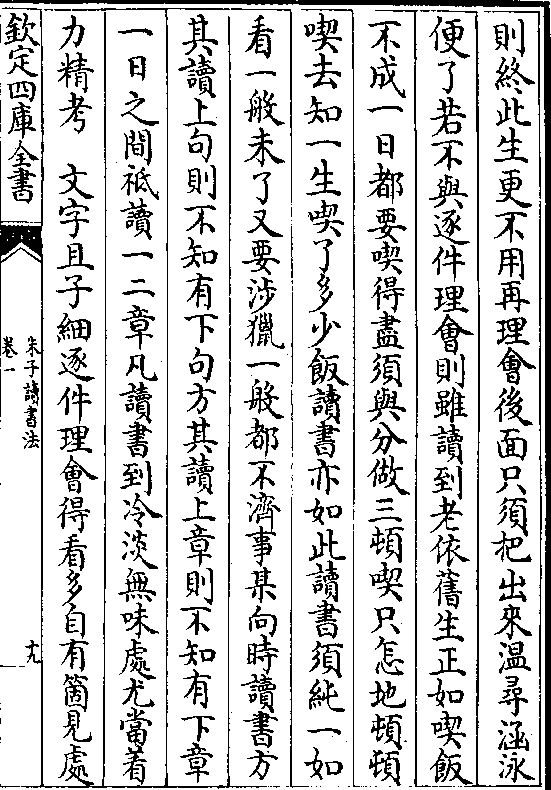 則終此生更不用再理會後面只須把出來溫尋涵泳
便了若不與逐件理會則雖讀到老依舊生正如喫飯
不成一日都要喫得盡須與分做三頓喫只恁地頓頓
喫去知一生喫了多少飯讀書亦如此讀書須純一如
看一般未了又要涉獵一般都不濟事某向時讀書方
其讀上句則不知有下句方其讀上章則不知有下章
一日之間祗讀一二章凡讀書到冷淡無味處尤當着
力精考　文字且子細逐件理會得看多自有箇見處
欽定四庫全書
朱子讀書法
卷一
十九